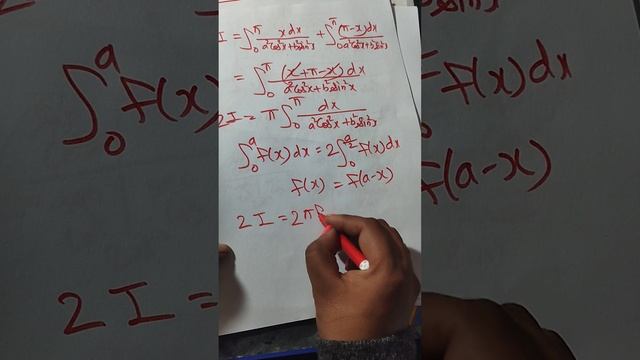 I = ∫₀^π x dx / (a²cos²x + b²sin²x) + ∫₀^π (π-x)dx / (a²cos²x + b²sin²x)
= ∫₀^π (x+π-x)dx / (a²cos²x + b²sin²x)
2I = π ∫₀^π dx / (a²cos²x + b²sin²x)
∫₀^a f(x)dx = 2∫₀^(a/2) f(x)dx
f(x) = f(a-x)
2I = 2π